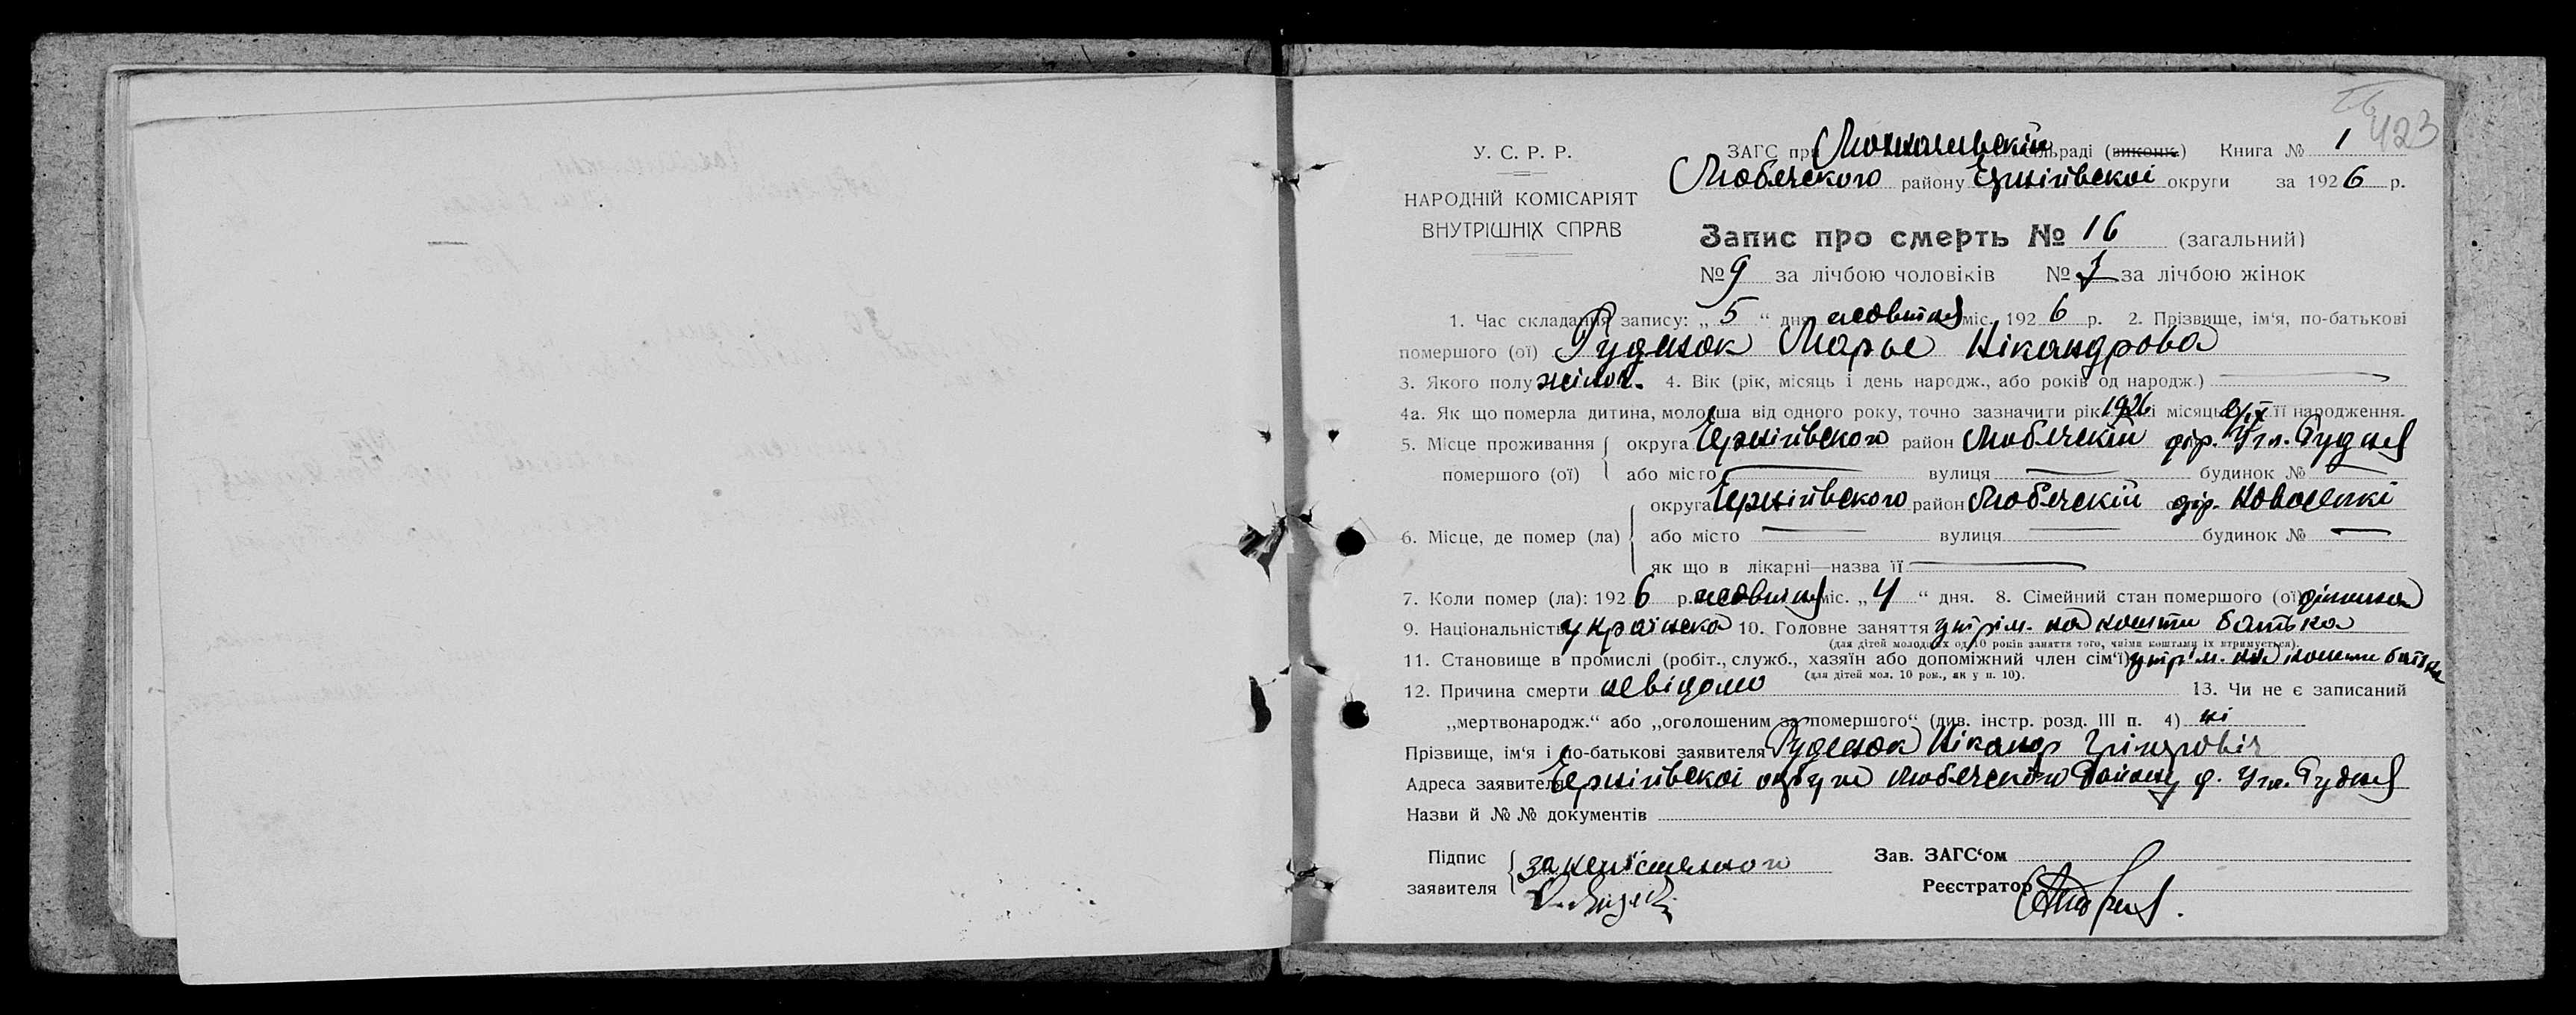 423
У. С. Р. Р.
НАРОДНІЙ КОМІСАРІЯТ
ВНУТРІШНІХ СПРАВ
ЗАГС при сільраді (виконк.) Книга № 1
Любечского району Чернігівскоі округи за 1926 р.
Запис про смерть № 16 (загальний)
№ 9 за лічбою чоловіків № 7 за лічбою жінок
1. Час складання запису: „ 5 “ дня жовтня міс. 1926 р. 2. Прізвище, ім‘я, по-батькові
помершого (ої) Руденок Марье Нікандрова
3. Якого полу жіноч. 4. Вік (рік, місяць і день народж., або років од народж.)
4а. Як що померла дитина, молодша від одного року, точно зазначити рік 1926 і місяць її народження.
5. Місце проживання помершого (ої) округа Чернігівского район Любечскій дер. Угл. Рудня
або місто вулиця будинок №
6. Місце, де помер (ла) округа Чернігівского район Любечскій дер. Новоселкі
або місто вулиця будинок №
як що в лікарні—назва її
7. Коли помер (ла): 1926 р. жовтня міс. „ 4 “ дня. 8. Сімейний стан помершого (ої) дитина
9. Національність українска 10. Головне заняття утрім. на кошти батька
(для дітей молодших од 10 років заняття того, чиїми коштами їх втримується).
11. Становище в промислі (робіт., служб., хазяїн або допоміжний член сім‘ї) утрім. на кошти батька
(для дітей мол. 10 рок., як у п. 10).
12. Причина смерти невідомо 13. Чи не є записаний
„мертвонародж.“ або „оголошеним за помершого“ (див. інстр. розд. III п. 4) ні
Прізвище, ім‘я і по-батькові заявителя Руденок Нікандр
Адреса заявителя Чернігівскоі округи Любечского Району д. Угл. Рудня
Назви й №№ документів
Підпис заявителя
Зав. ЗАГС‘ом
Реєстратор